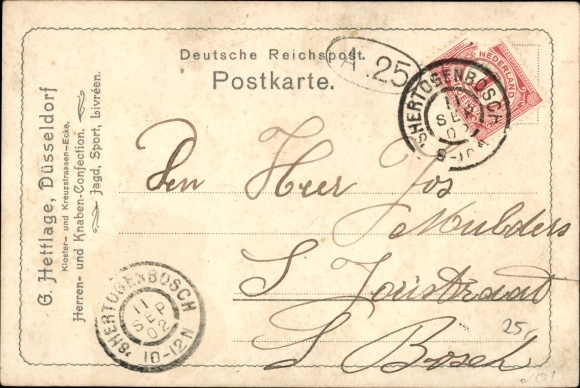 Deutsche Reichspost.
Postkarte.
A. 25
NEDERLAND
'SHERTOGENBOSCH
11
SEP
02
8-10
G. Hettlage, Düsseldorf
Kloster- und Kreuzstrassen-Ecke.
Herren- und Knaben-Confection.
Jagd, Sport, Livréen.
Den Heer Jos
Mulders
S Janstraat
S Bosch
'SHERTOGENBOSCH
11
SEP
02
10-12N
25,-